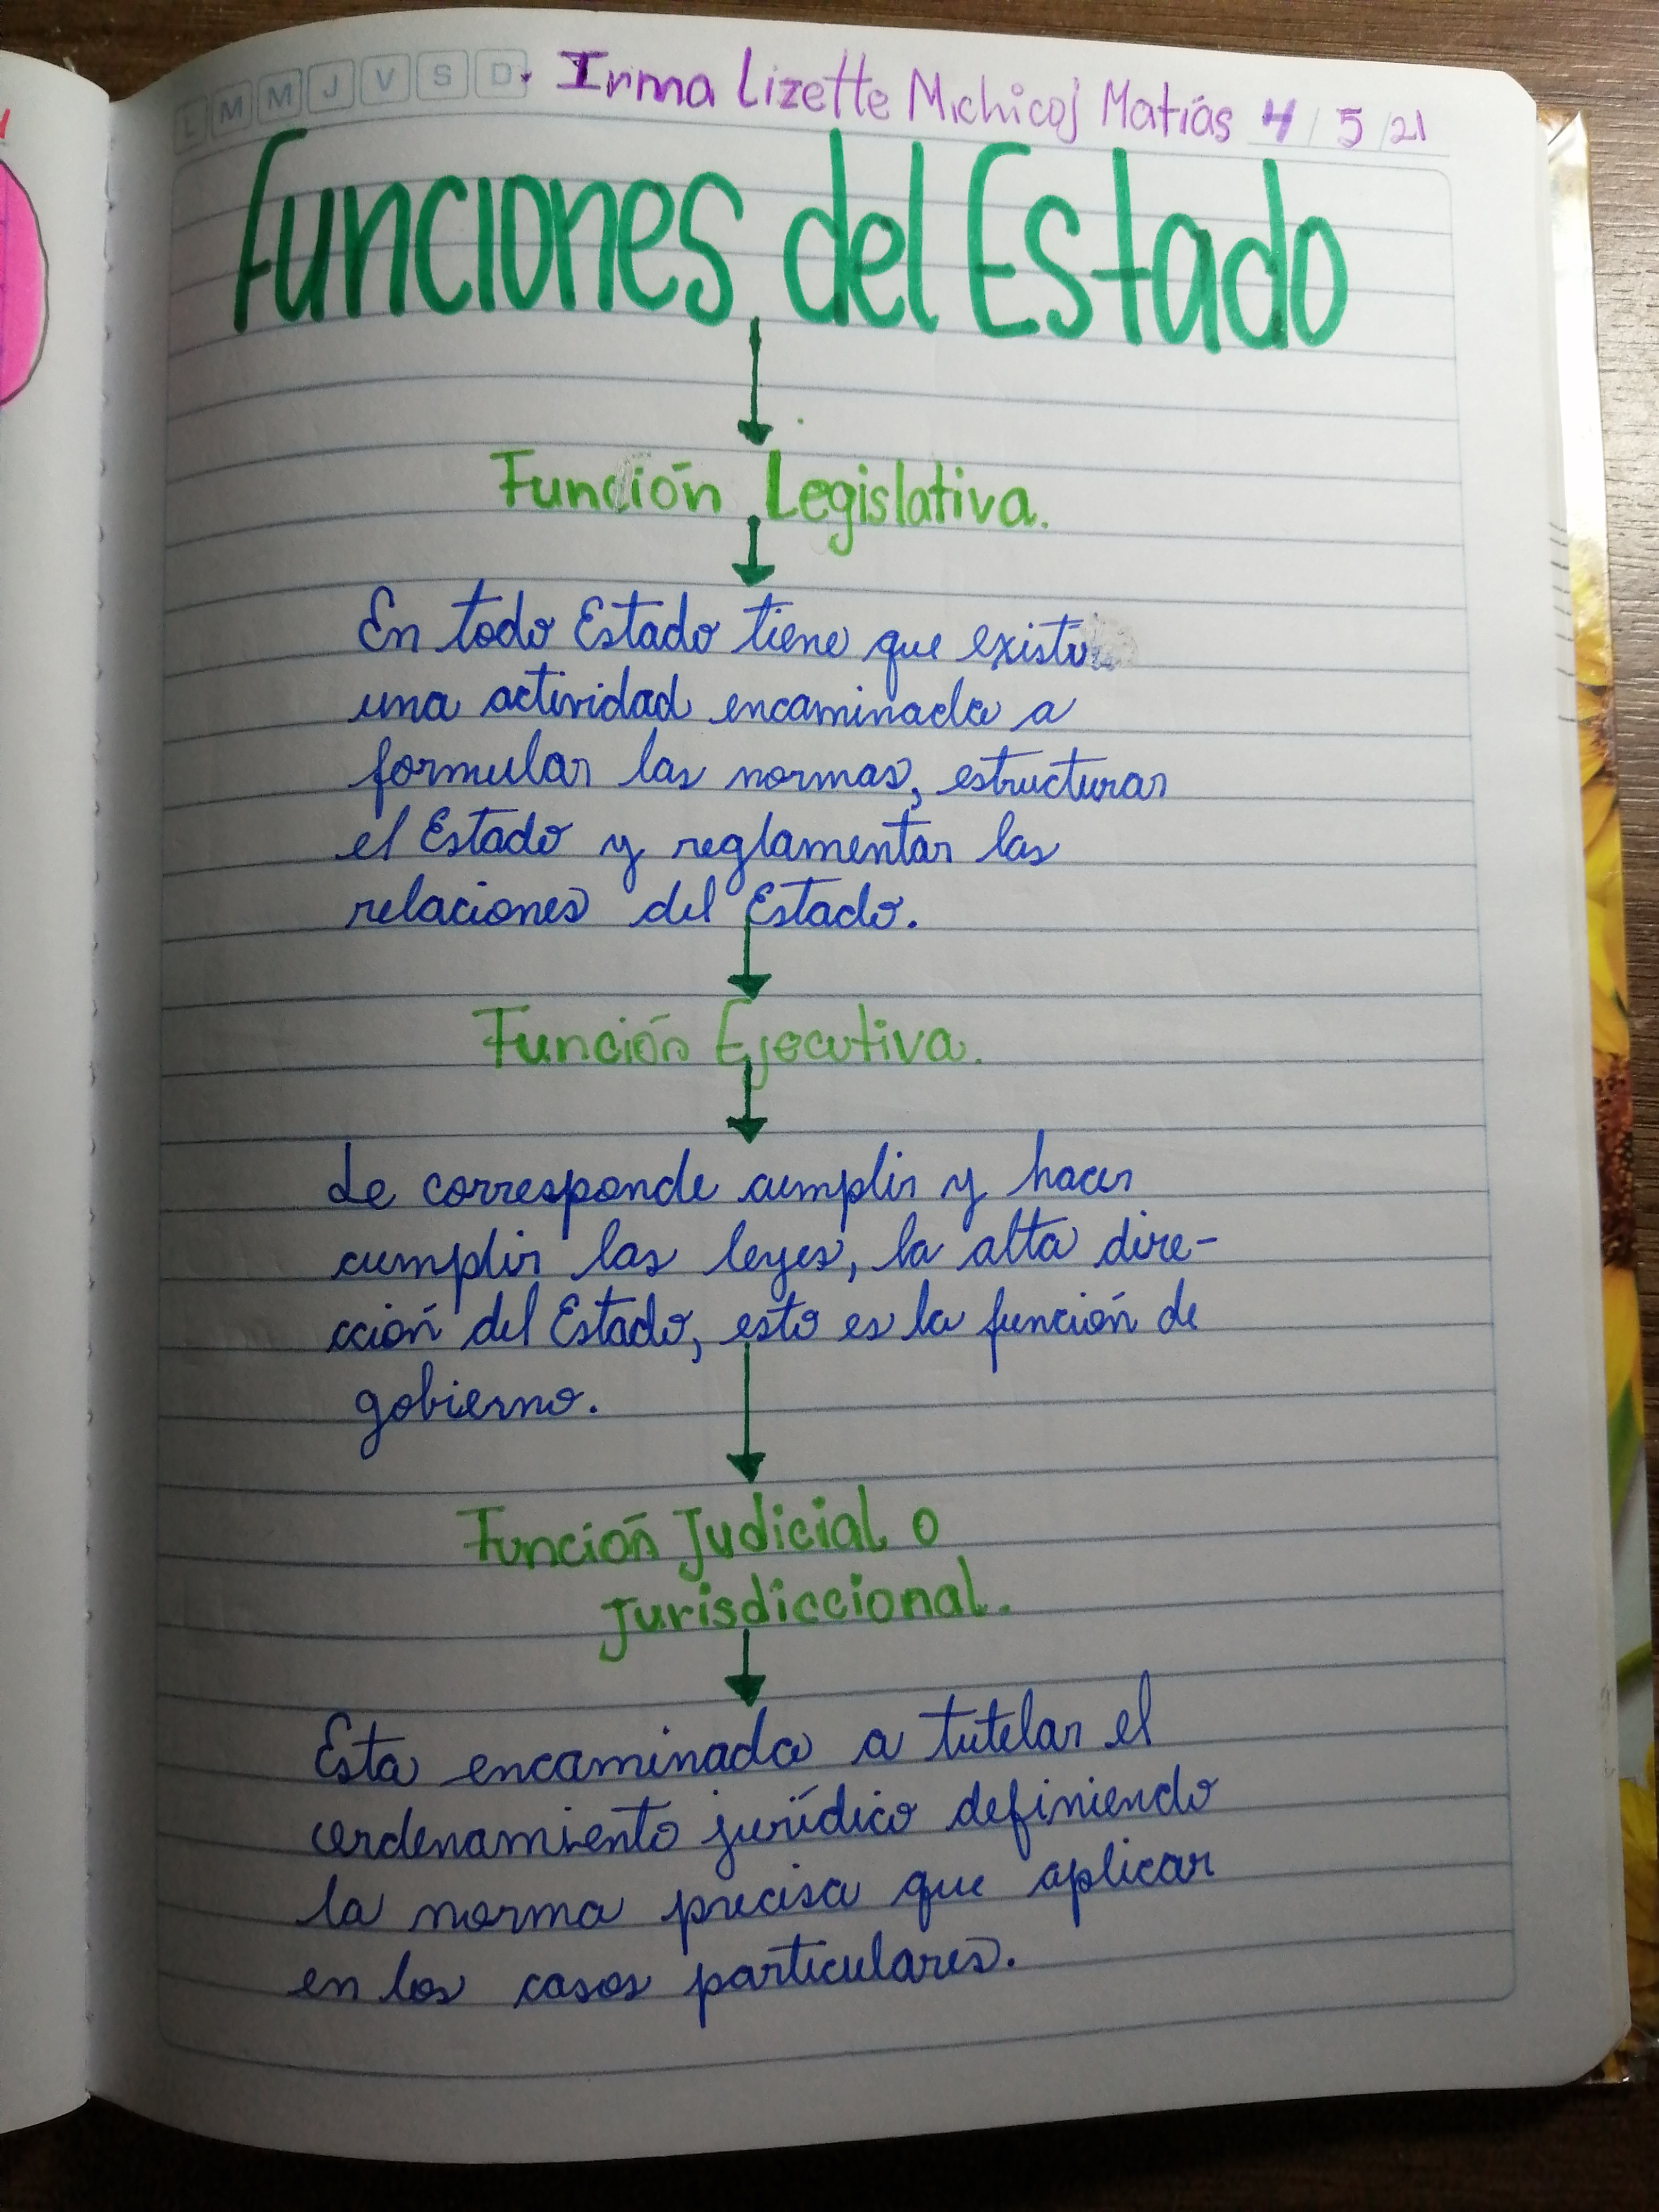 L M M J V S D. Irma Lizette Michicoj Matiás 4 / 5 / 21
Funciones del Estado
Función Legislativa.
En todo Estado tiene que existir
una actividad encaminada a
formular las normas, estructurar
el Estado y reglamentar las
relaciones del Estado.
Función Ejecutiva.
Le corresponde cumplir y hacer
cumplir las leyes, la alta dire-
cción del Estado, esto es la función de
gobierno.
Función Judicial o
Jurisdiccional.
Esta encaminada a tutelar el
ordenamiento jurídico definiendo
la norma precisa que aplicar
en los casos particulares.